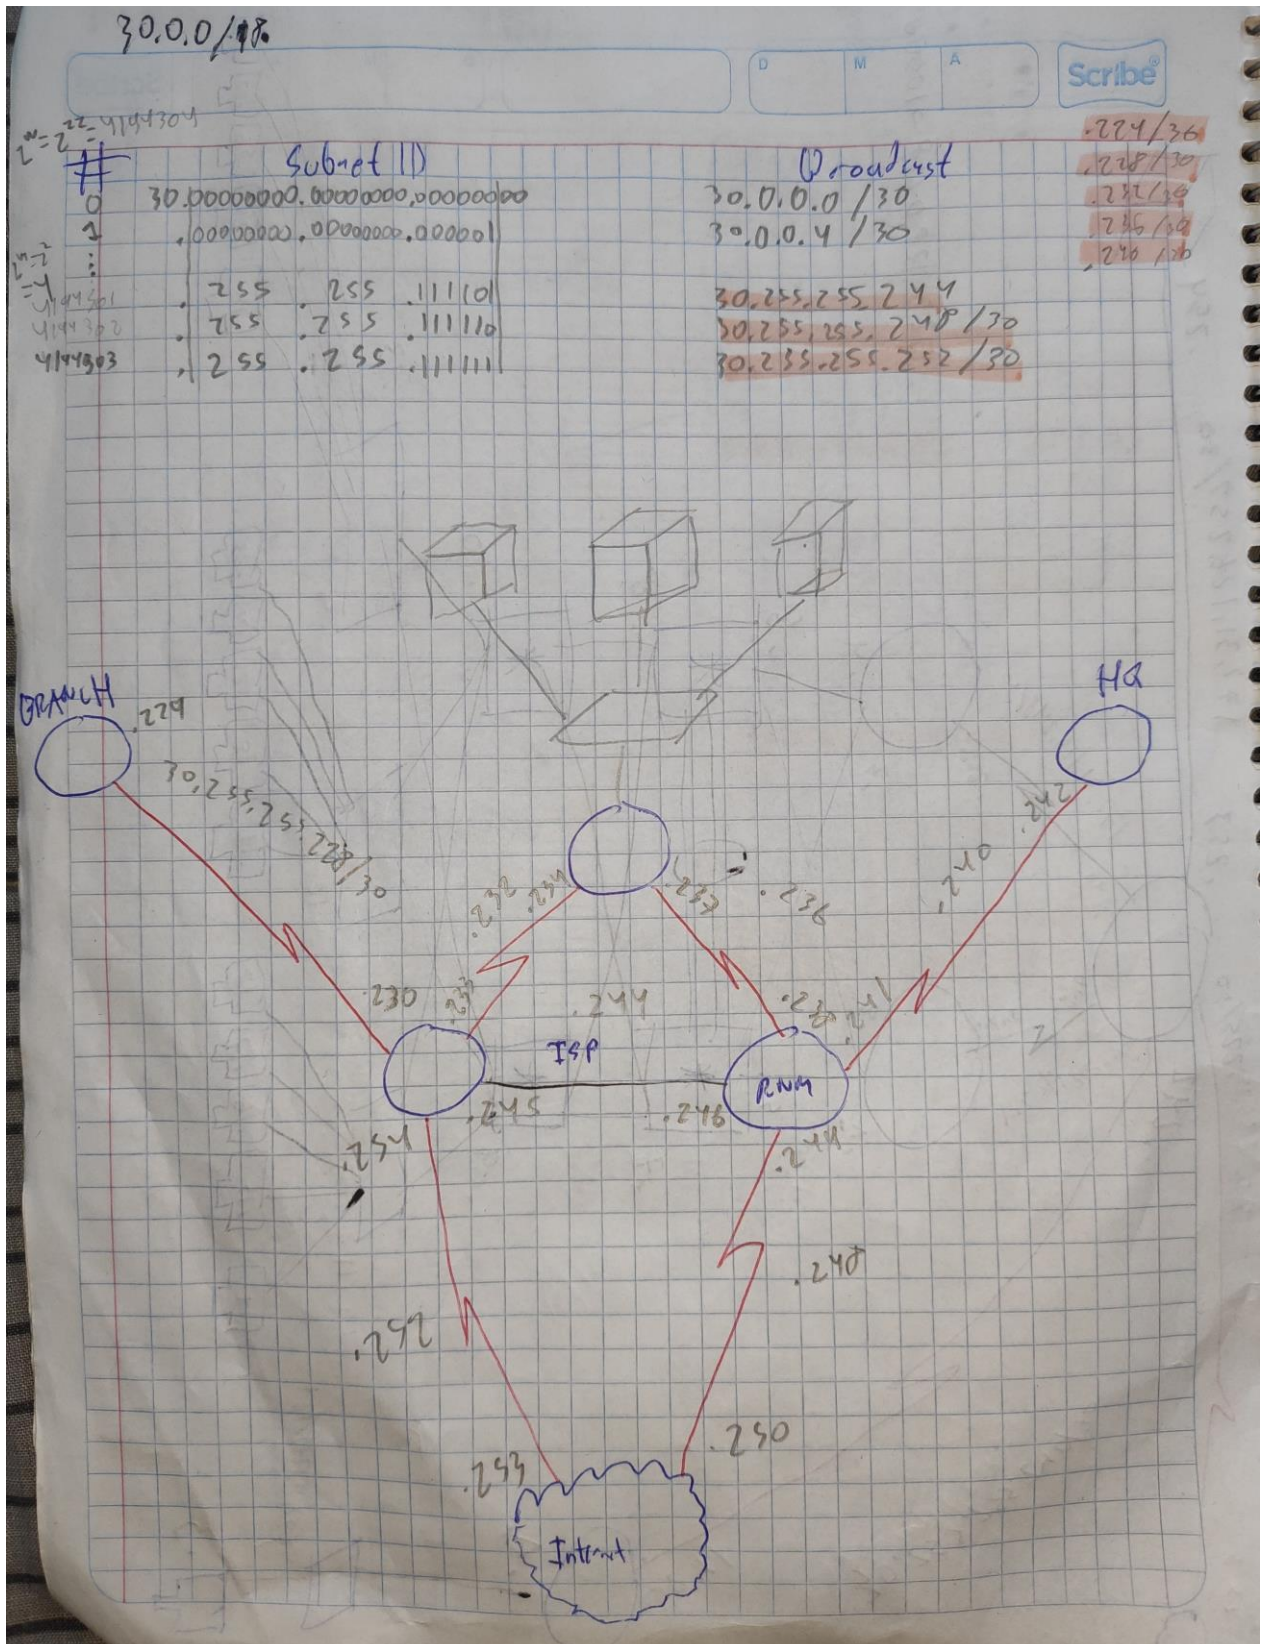 30.0.0/18.
D M A
Scribe®
2^n=2^22=4194304
# Subnet ID Broadcast
0 30.00000000.00000000,00000000 30.0.0.0/30
1 .00000000.00000000.000001 30.0.0.4/30
⋮
2^n=2^2
=4
4194301 . 255 . 255 .111101 30.255.255.244
4194302 . 255 . 255 .111110 30.255.255.248/30
4194303 . 255 . 255 .111111 30.255.255.252/30
.224/30
.228/30
.232/30
.236/30
.240/30
BRANCH
.229
30.255.255.228/30
HQ
.242
.240
.232
.234
.237
.236
.230
.233
.244
.241
ISP
RNM
.245
.246
.254
.249
.248
.252
.250
.253
Internet